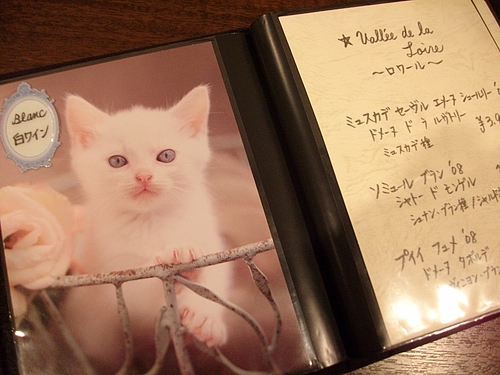 Blanc
白ワイン
★ Vallée de la
Loire
～ロワール～
ミュスカデ セーヴル エメーヌ シュールリー
ドメーヌ ド ラ ルヴトリー ¥3,9
ミュスカデ種
ソミュール ブラン '08
シャトー ド モンゲル
シュナン・ブラン種/シャルド
プイイ フュメ '08
ドメーヌ タボルデ
ソーヴィニヨン・ブラ